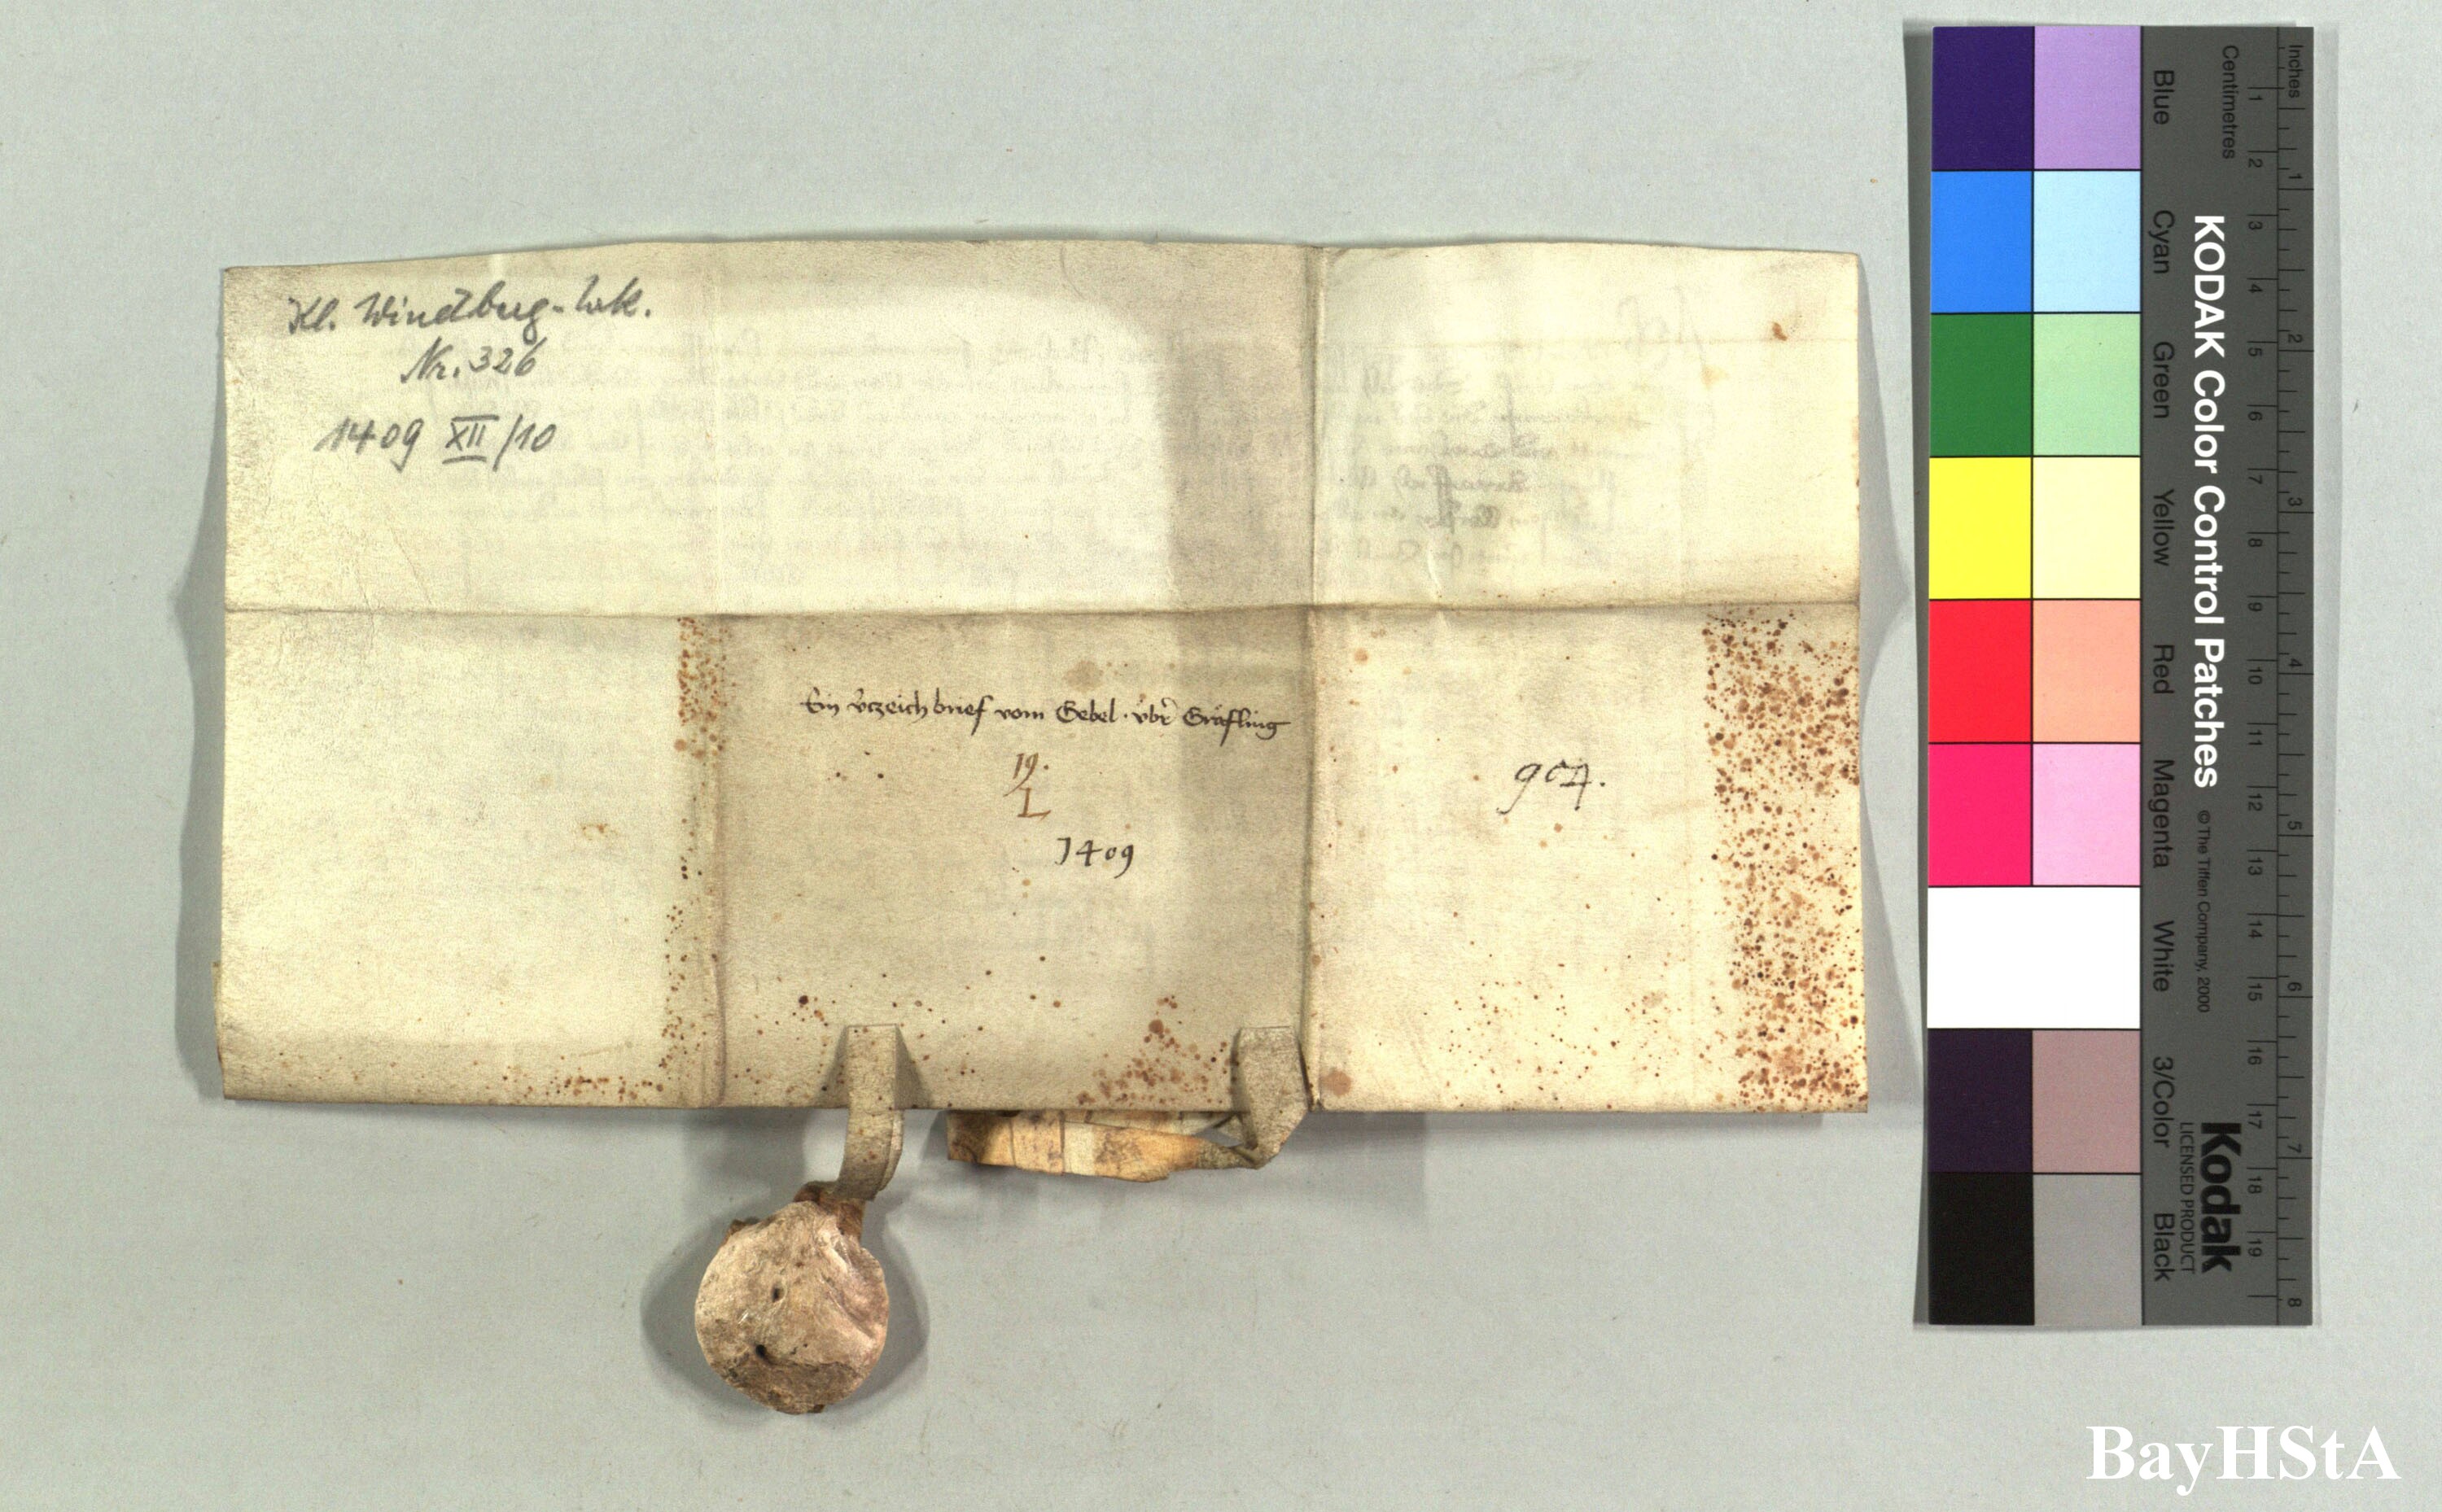 Kl. Windberg-Urk.
Nr. 326
1409 XII/10
Ein vͤrzeich brief vom Gebel · vbr̄ Gräfling
19.
L
1409
904.
Inches
Centimetres
1 2 3 4 5 6 7 8 9 10 11 12 13 14 15 16 17 18 19
1 2 3 4 5 6 7 8
KODAK Color Control Patches © The Tiffen Company, 2000
Kodak
LICENSED PRODUCT
Blue Cyan Green Yellow Red Magenta White 3/Color Black
BayHStA